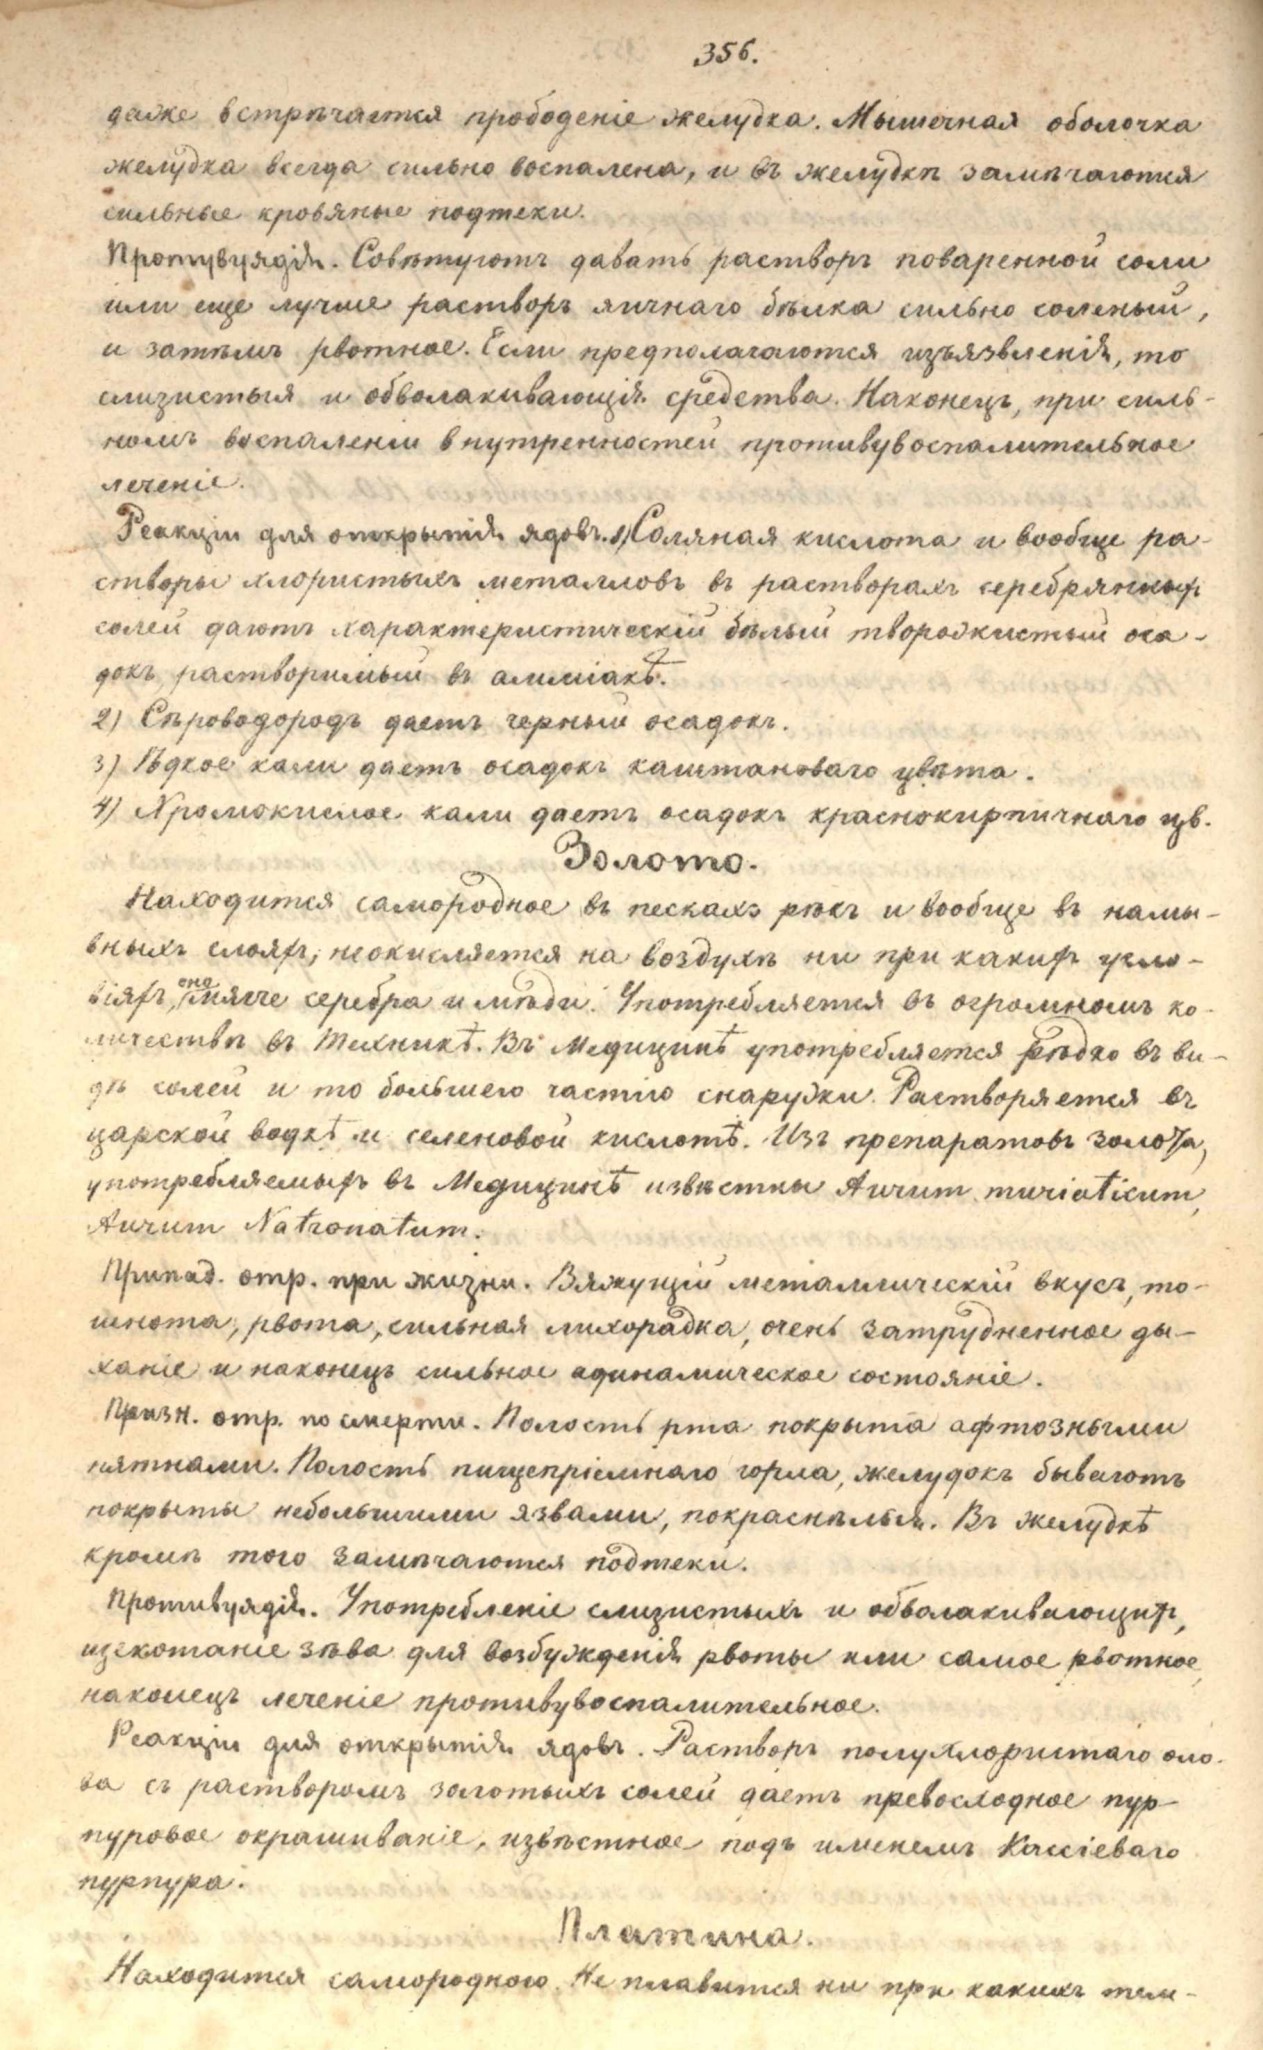 356.
даже встрѣчается прободеніе желудка. Мышечная оболочка
желудка всегда сильно воспалена, и въ желудкѣ замѣчаются
сильные кровяные подтеки.
Противуядія. Совѣтуютъ давать растворъ поваренной соли
или еще лучше растворъ яичнаго бѣлка сильно соленый,
и затѣмъ рвотное. Если предполагаются изъязвленія, то
слизистыя и обволакивающія средства. Наконецъ, при силь-
номъ воспаленіи внутренностей противувоспалительное
леченіе.
Реакціи для открытія ядовъ. 1) Соляная кислота и вообще ра-
створы хлористыхъ металловъ въ растворахъ серебряныхъ
солей даютъ характеристическій бѣлый творожистый оса-
докъ растворимый въ амміакѣ.
2) Сѣроводородъ даетъ черный осадокъ.
3) Ѣдкое кали даетъ осадокъ каштановаго цвѣта.
4) Хромокислое кали даетъ осадокъ краснокирпичнаго цв.
Золото.
Находится самородное въ пескахъ рѣкъ и вообще въ намы-
вныхъ слояхъ; неокисляется на воздухѣ ни при какихъ усло-
віяхъ, оно мягче серебра и мѣди. Употребляется въ огромномъ ко-
личествѣ въ Техникѣ. Въ Медицинѣ употребляется рѣдко въ ви-
дѣ солей и то большею частію снаружи. Растворяется въ
царской водкѣ и селеновой кислотѣ. Изъ препаратовъ золота,
употребляемыхъ въ Медицинѣ извѣстны Aurum muriaticum,
Aurum Natronatum.
Припад. отр. при жизни. Вяжущій металлическій вкусъ, то-
шнота, рвота, сильная лихорадка, очень затрудненное ды-
ханіе и наконецъ сильное адинамическое состояніе.
Призн. отр. по смерти. Полость рта покрыта афтозными
пятнами. Полость пищепріемнаго горла, желудокъ бываютъ
покрыты небольшими язвами, покраснѣлыя. Въ желудкѣ
кромѣ того замѣчаются подтеки.
Противуядія. Употребленіе слизистыхъ и обволакивающихъ,
щекотаніе зѣва для возбужденія рвоты или самое рвотное,
наконецъ леченіе противувоспалительное.
Реакціи для открытія ядовъ. Растворъ полухлористаго оло-
ва съ растворомъ золотыхъ солей даетъ превосходное пур-
пуровое окрашиваніе, извѣстное подъ именемъ Кассіеваго
пурпура.
Платина.
Находится самородною. Не плавится ни при какихъ тем-